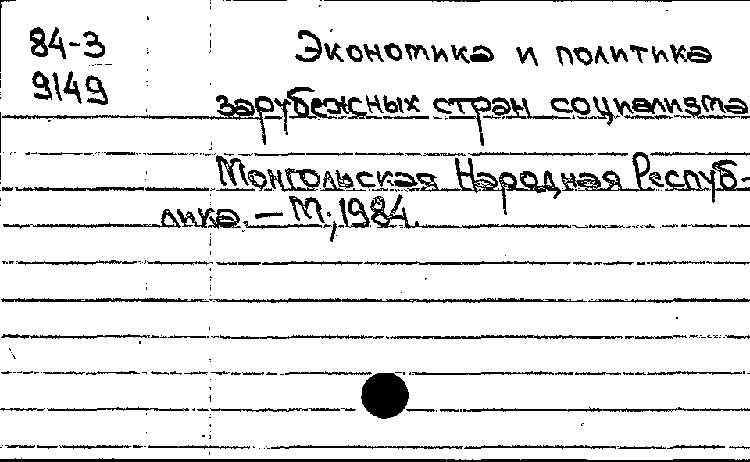 84-3
9149
Экономика и политика
зарубежных стран социализма
Монгольская Народная Респуб-
лика. — М., 1984.